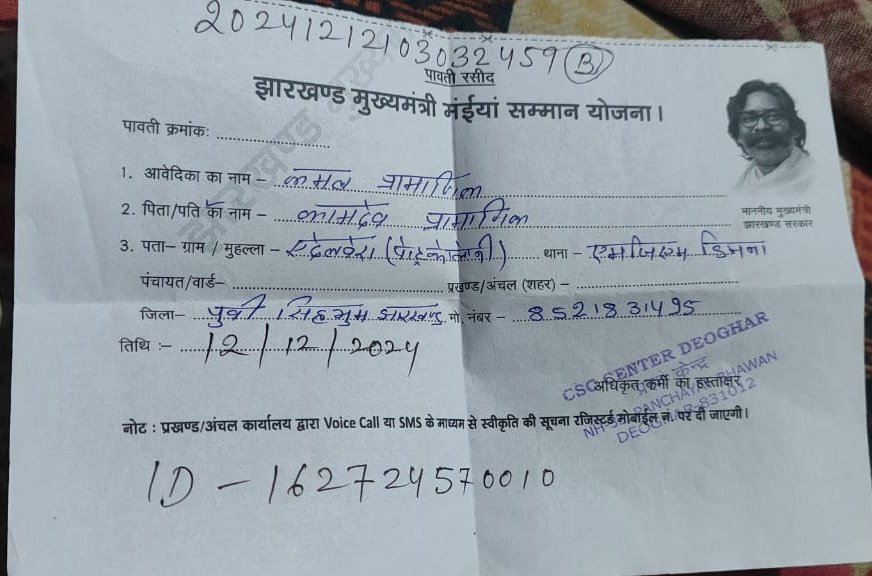 20241212103032459 (B)
पावती रसीद
झारखण्ड मुख्यमंत्री मंईयां सम्मान योजना।
पावती क्रमांकः
1. आवेदिका का नाम – कमल प्रामाणिक
2. पिता/पति का नाम – कामदेव प्रामाणिक
माननीय मुख्यमंत्री
झारखण्ड सरकार
3. पता– ग्राम / मुहल्ला – थाना – एमजिएम डिमना
पंचायत/वार्ड– प्रखण्ड/अंचल (शहर) –
जिला– पुर्वी सिंहभुम झारखण्ड मो. नंबर – 8521831495
तिथि :– 12/12/2024
CSC CENTER DEOGHAR
अधिकृत कर्मी का हस्ताक्षर
PANCHAYAT BHAWAN
नोट : प्रखण्ड/अंचल कार्यालय द्वारा Voice Call या SMS के माध्यम से स्वीकृति की सूचना रजिस्टर्ड मोबाईल नं. पर दी जाएगी।
ID – 162724570010